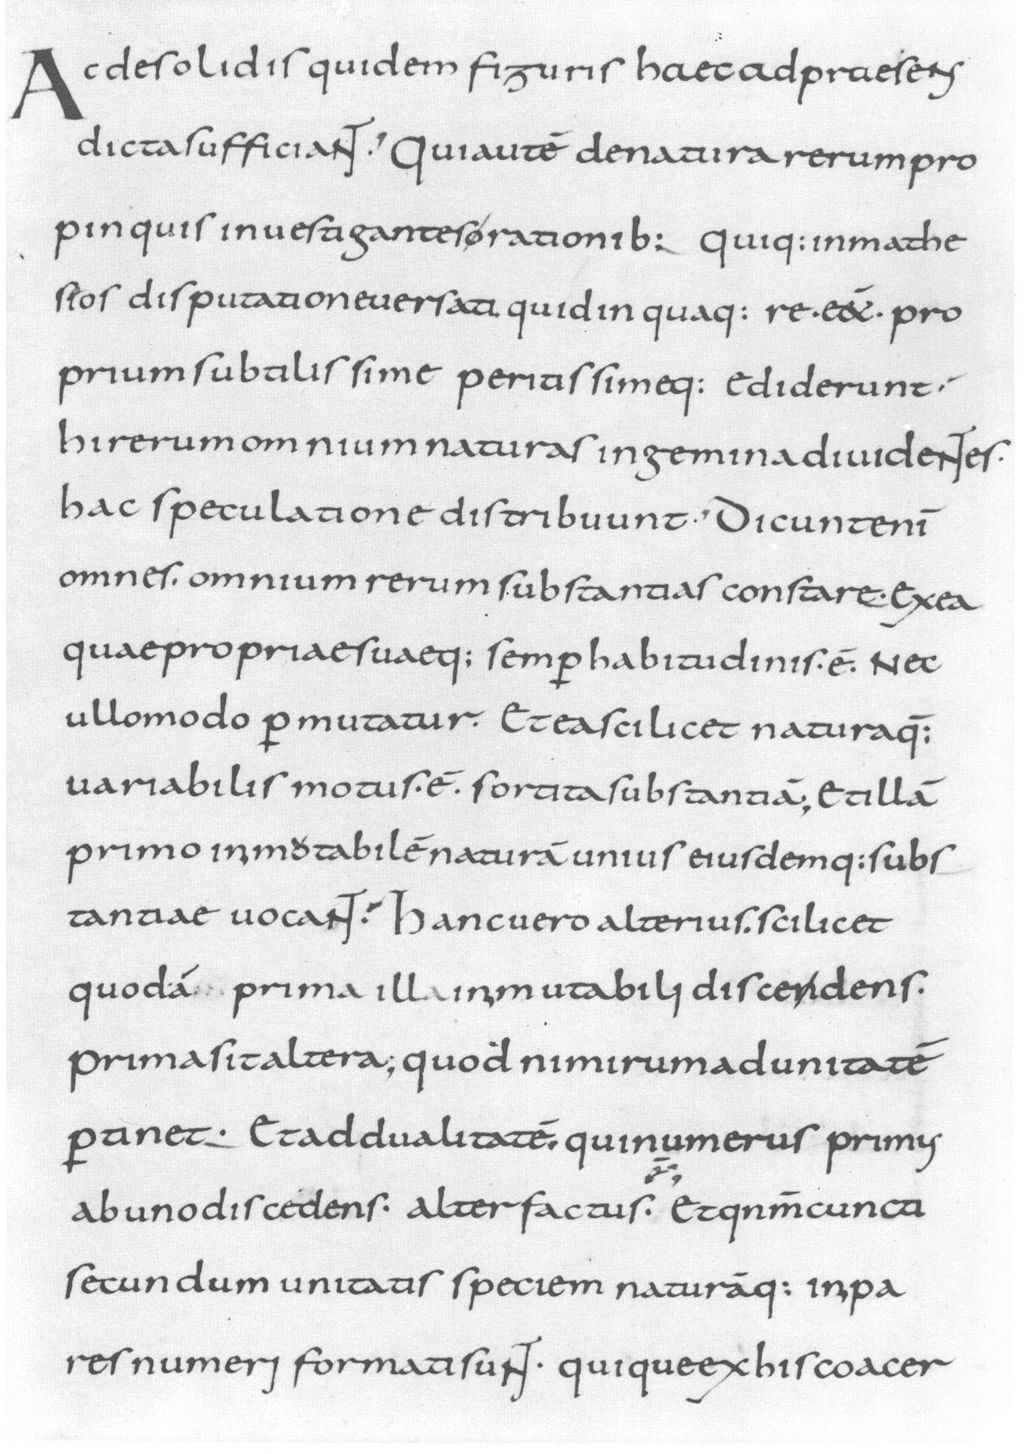 Ac desolidis quidem figuris haec adpraesens
dicta sufficiant. Quiautē denatura rerum pro
pinquis investigantes orationib: Quiq: inmathe
seos disputatione versati quid in quaq: re. eēt. pro
prium subtilis sime peritis simeq: ediderunt.
hi rerum omnium naturas in gemina dividentes.
hac speculatione distribuunt. Dicunt enī
omnes. omnium rerum substantias constare. Ex ea
quae propriae suaeq; semp habitudinis. ē. Nec
ullomodo pmutatur. Et ea scilicet naturaq;
variabilis motus. ē. sortita substantiā; Et illā
primo inmotabilē naturā unius eiusdemq: subs
tantiae vocant. Hanc vero alterius. scilicet
quodā prima illa inmutabili discendens.
prima sit altera; quod nimirum ad unitatē
ptinet. Et ad dualitatē. qui numerus primus
ab uno discedens. alter factus. Et qnm̄ cuncta
secundum unitatis speciem naturāq: inpa
res numeri formati sunt. quique ex his coacer